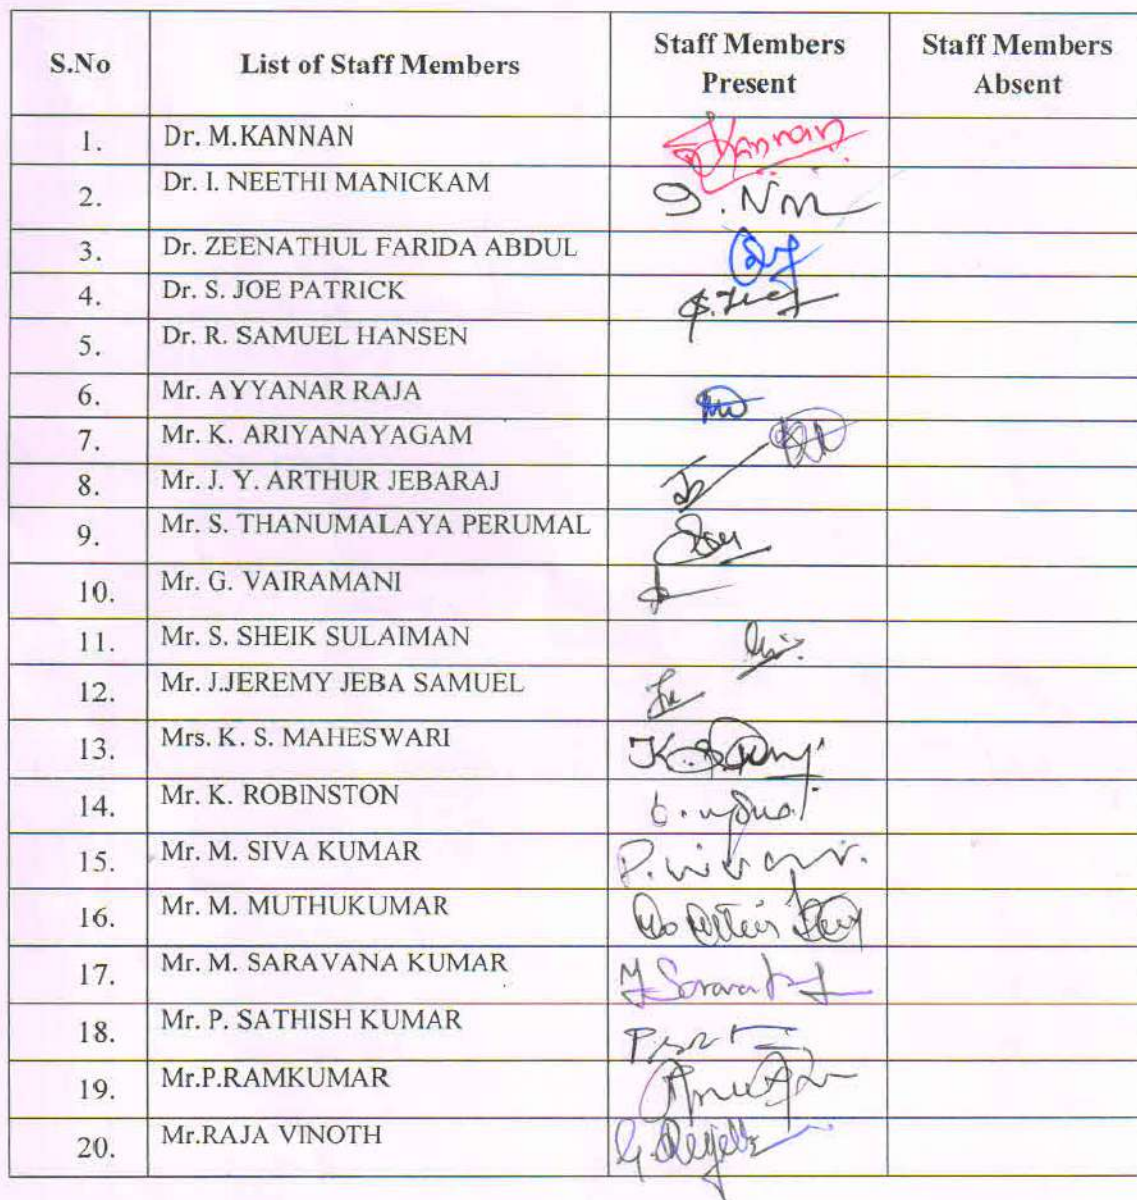 S.No List of Staff Members Staff Members Present Staff Members Absent
1. Dr. M.KANNAN Kannan
2. Dr. I. NEETHI MANICKAM
3. Dr. ZEENATHUL FARIDA ABDUL
4. Dr. S. JOE PATRICK
5. Dr. R. SAMUEL HANSEN
6. Mr. AYYANAR RAJA
7. Mr. K. ARIYANAYAGAM
8. Mr. J. Y. ARTHUR JEBARAJ
9. Mr. S. THANUMALAYA PERUMAL
10. Mr. G. VAIRAMANI
11. Mr. S. SHEIK SULAIMAN
12. Mr. J.JEREMY JEBA SAMUEL
13. Mrs. K. S. MAHESWARI
14. Mr. K. ROBINSTON
15. Mr. M. SIVA KUMAR
16. Mr. M. MUTHUKUMAR
17. Mr. M. SARAVANA KUMAR
18. Mr. P. SATHISH KUMAR
19. Mr.P.RAMKUMAR
20. Mr.RAJA VINOTH